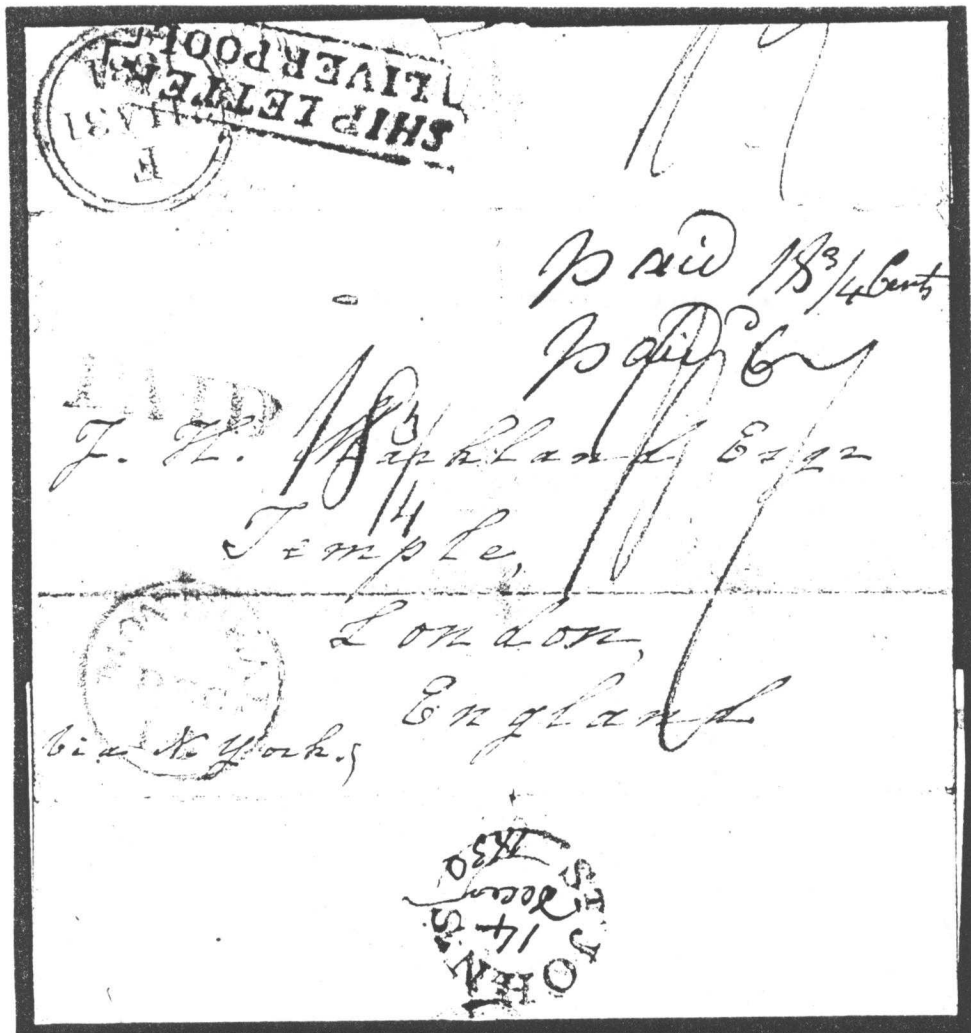 SHIP LETTER
LIVERPOOL
F
1831
paid 18 3/4 Cents
paid 6
PAID
18 3/4
J. H. Markland Esqr
Temple,
London,
England
via N. York.
ST JOHN'S
14
Decem
1830